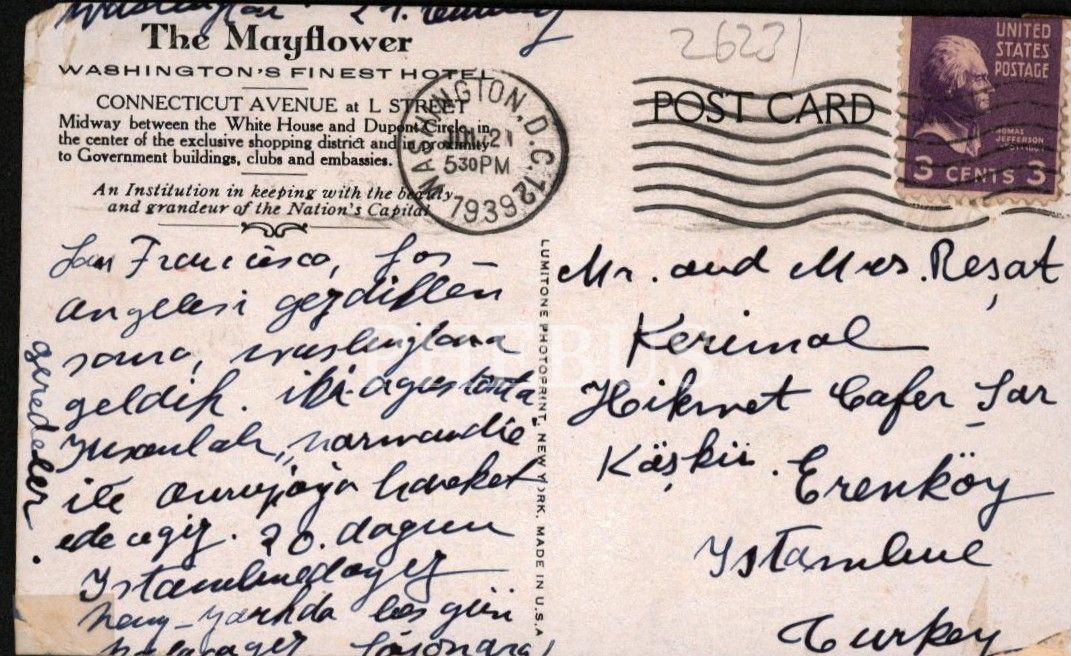 Washington 21. Temmuz
The Mayflower
WASHINGTON'S FINEST HOTEL
CONNECTICUT AVENUE at L STREET
Midway between the White House and Dupont Circle, in
the center of the exclusive shopping district and in proximity
to Government buildings, clubs and embassies.
An Institution in keeping with the beauty
and grandeur of the Nation's Capital
26231
WASHINGTON, D.C. 12
JUL 21
5 30 PM
1939
POST CARD
UNITED
STATES
POSTAGE
THOMAS
JEFFERSON
3 CENTS 3
San Francisco, Los-
Angelesi gezdikten
sonra, washingtona
geldik. iki agustosta
Inşaalah, "normandie"
ile avrupaya hareket
edecegiz. 20. da
Istambuldayız
New-yorkda beş gün
kalacagız
gerede
LUMITONE PHOTOPRINT, NEW YORK. MADE IN U.S.A
Mr. and Mrs. Reşat
Kerimol
Hikmet Cafer Sar
Köşkü. Erenköy
Istambul
Turkey
PHEBUS